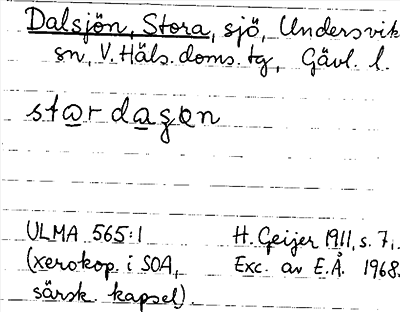 Dalsjön, Stora, sjö, Undersvik
sn, V. Häls. doms. tg, Gävl. l.
stɑr dɑgɛn
ULMA 565:1 H. Geijer 1911, s. 7.
(xerokop. i SOA, Exc. av E.Å. 1968.
särsk. kapsel).